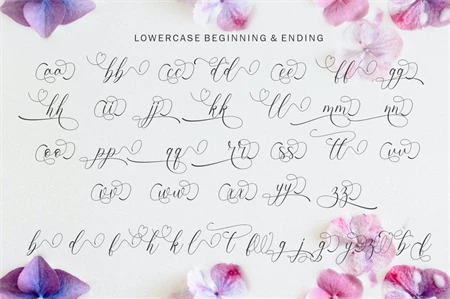 LOWERCASE BEGINNING & ENDING
aa bb cc dd ee ff gg
hh ii jj kk ll mm nn
oo pp qq rr ss tt uu
vv ww xx yy zz
b d f h k l t f g j g y z b d